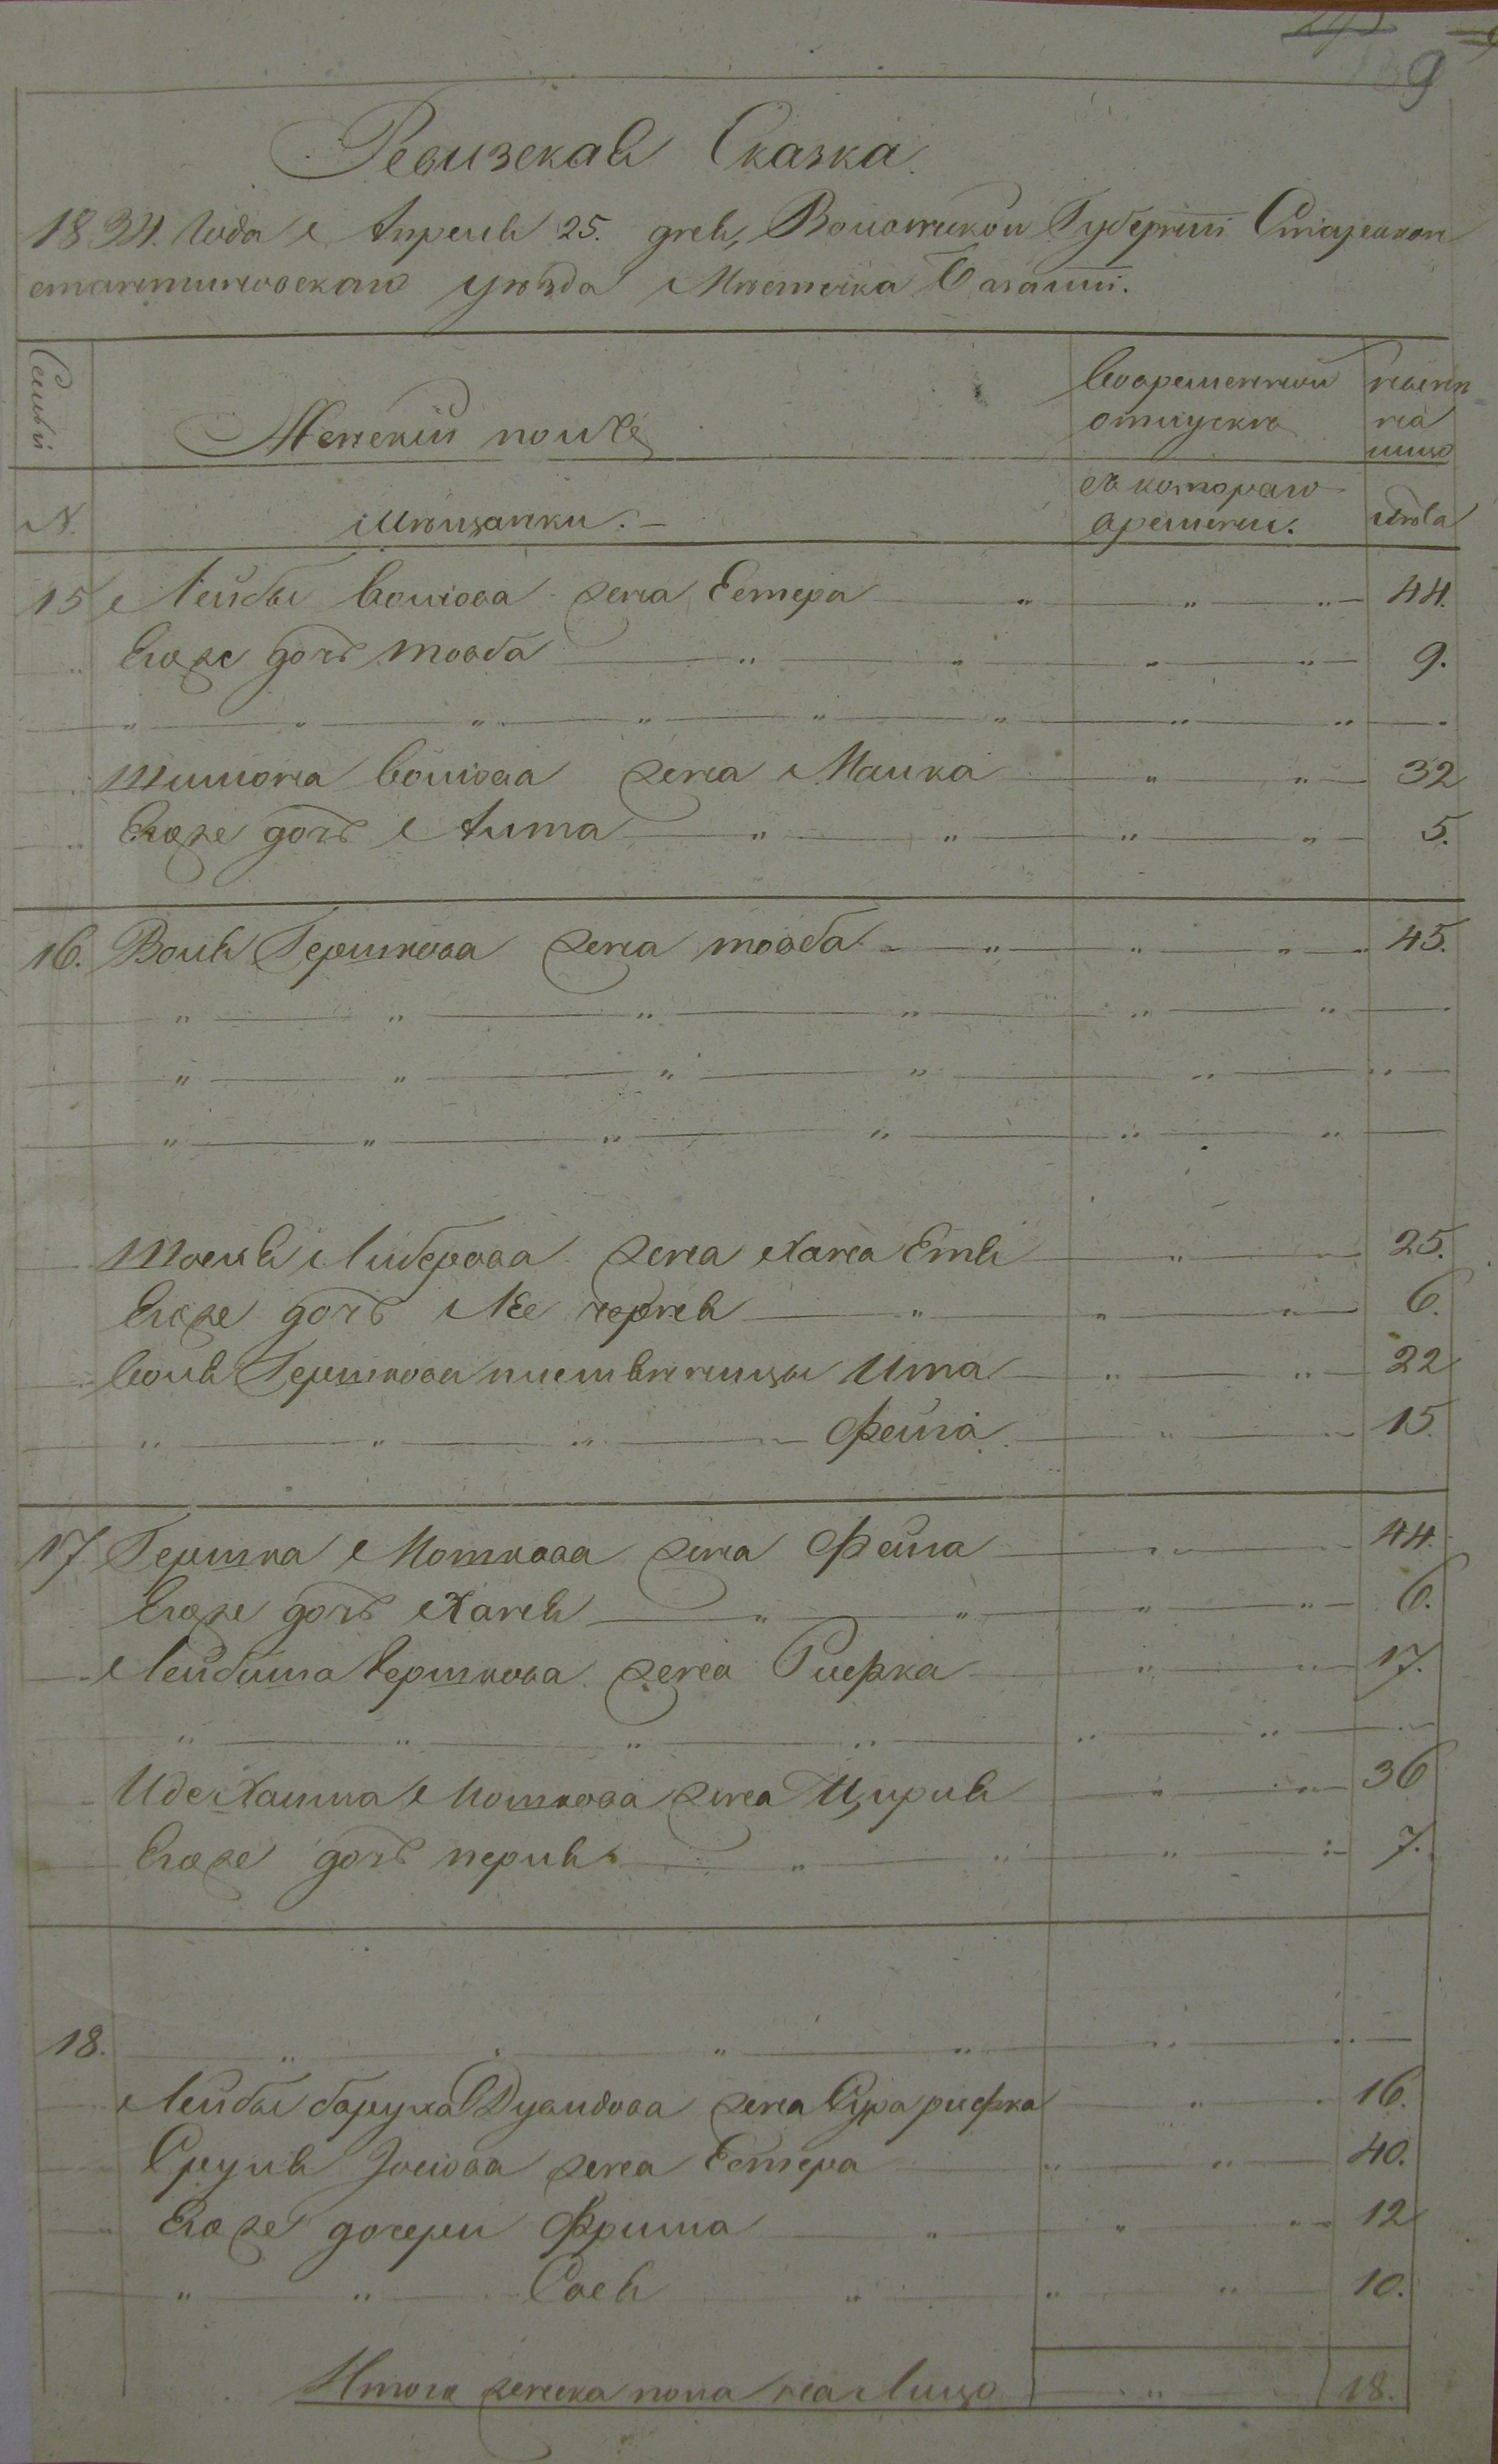 9
Ревизская Сказка
1834. Года Апреля 25. дня, Волынской Губернiи Староконстантиновскаго уѣзда Мѣстечка Базалiи.
Семьи
Женскiй полъ
Во временной отлучкѣ
нынѣ на лицо
N.
Мѣщанки. -
съ котораго времени.
лѣта
15 Лейбы Волюва жена Естера " " " 44.
" Егоже дочь Товба " " " " 9.
" " " " " " " "
" Шимона Волюва жена Малка " " 32
" Егоже дочь Лита " " " " 5.
16. Воля Гершкова жена товба " " " 45.
" " " " " "
" " " " " "
" " " " " "
Мосия Либерова жена Хана Етля " " 25.
Егоже дочь Черня " " " 6.
Воля Гершкова племянницы Ита " " 22
" " " Фейга " " 15.
17. Гершка Мошкова жена Фейга " " 44.
Егоже дочь Ханя " " " " 6.
Лейбиша Гершкова жена Рифка " " 17.
" " " " " "
Иде Хаима Мошкова жена Циpля " " 36
Егоже дочь перля " " " 7.
18. " " " " " "
Лейбы баруха Дувидова жена Сура рифка " " 16.
Сруля Iосiова жена Естера " " 40.
Егоже дочери Фрима " " " 12
" " Сося " " " 10.
Итого женска пола на Лицо " 18.